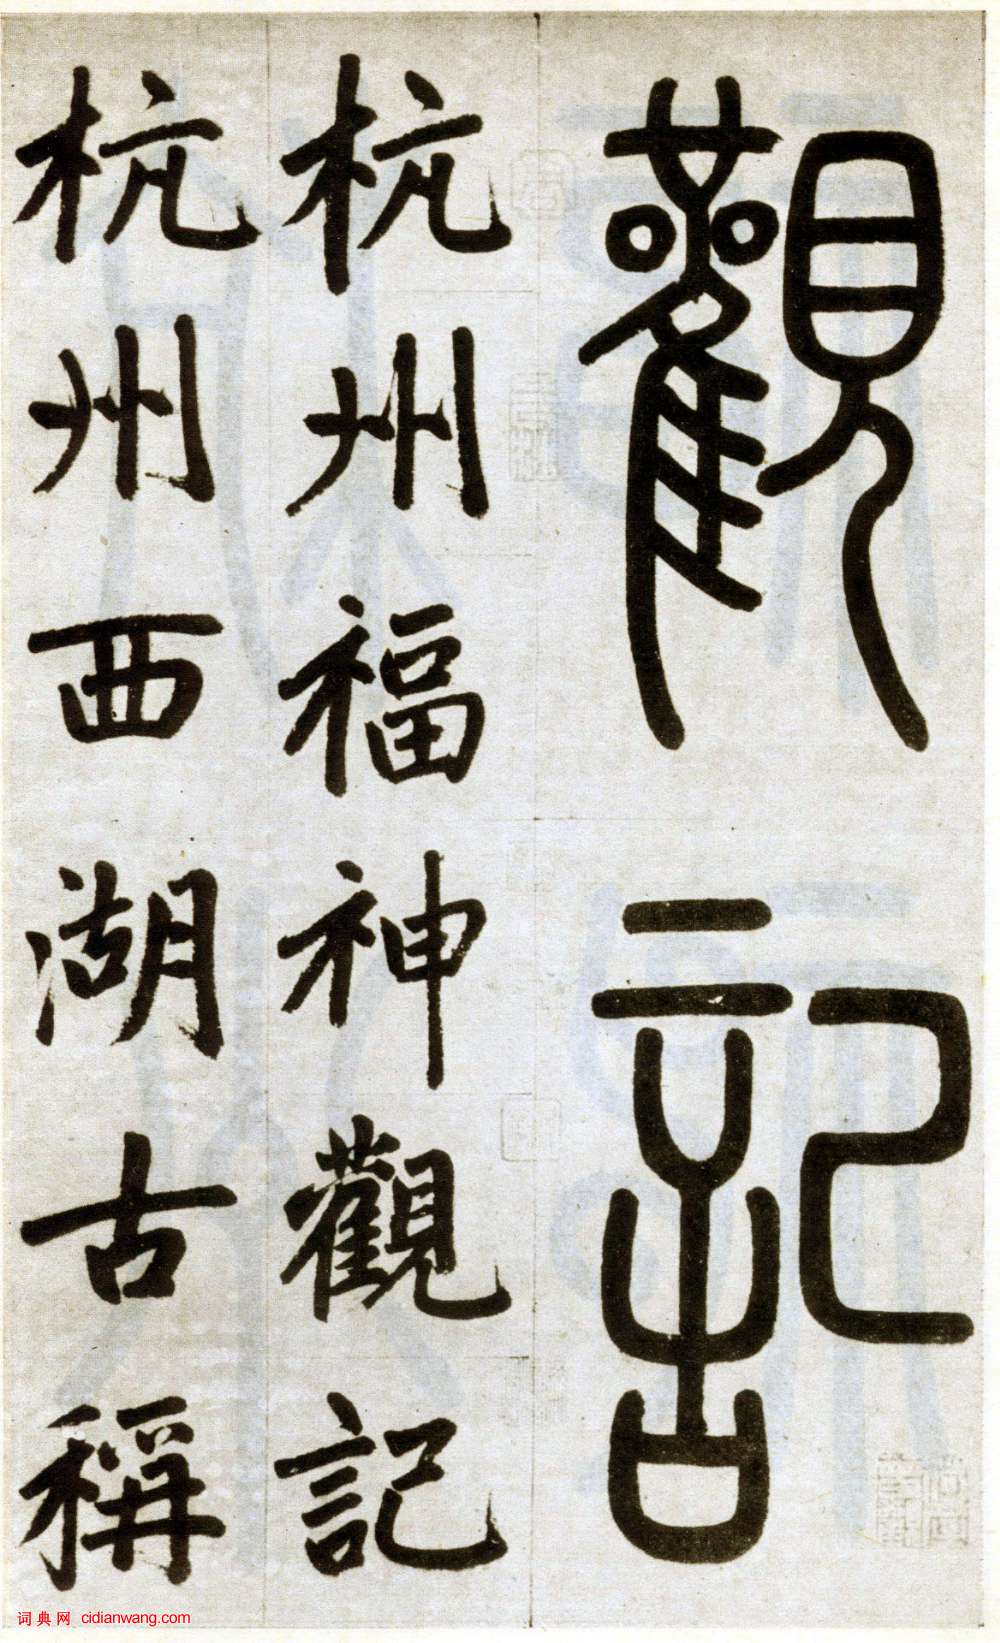 觀記
杭州福神觀記
杭州西湖古稱
词典网 cidianwang.com